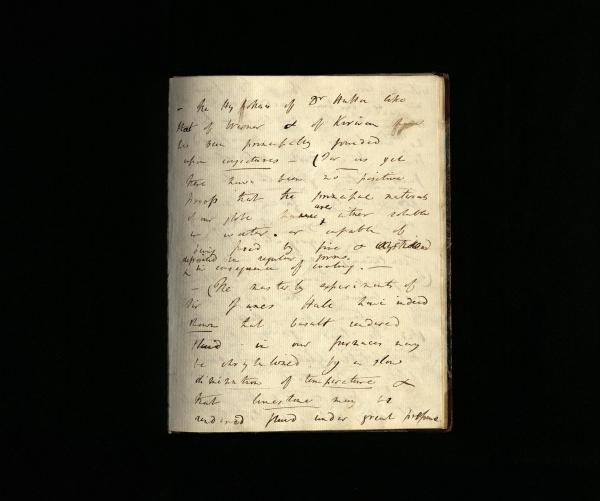 – The Hypothesis of Dr Hutton like
that of Werner & of Kirwan
has been principally founded
upon conjectures – (For as yet
there have been no positive
proofs that the principal materials
of our globe are either soluble
in water. or capable of
being fused by fire &
deposited in regular forms.
in consequence of cooling. –
– (The masterly experiments of
Sir James Hall have indeed
shown that basalt rendered
fluid in our furnaces may
be chrystallized by a slow
diminution of temperature &
that limestone may be
rendered fluid under great pressure